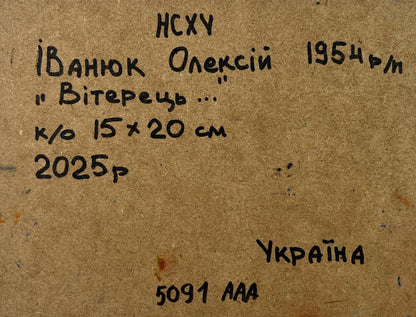 НСХУ
Іванюк Олексій 1954 р/н
"Вітерець..."
к/о 15 х 20 см
2025р
Україна
5091 ААА